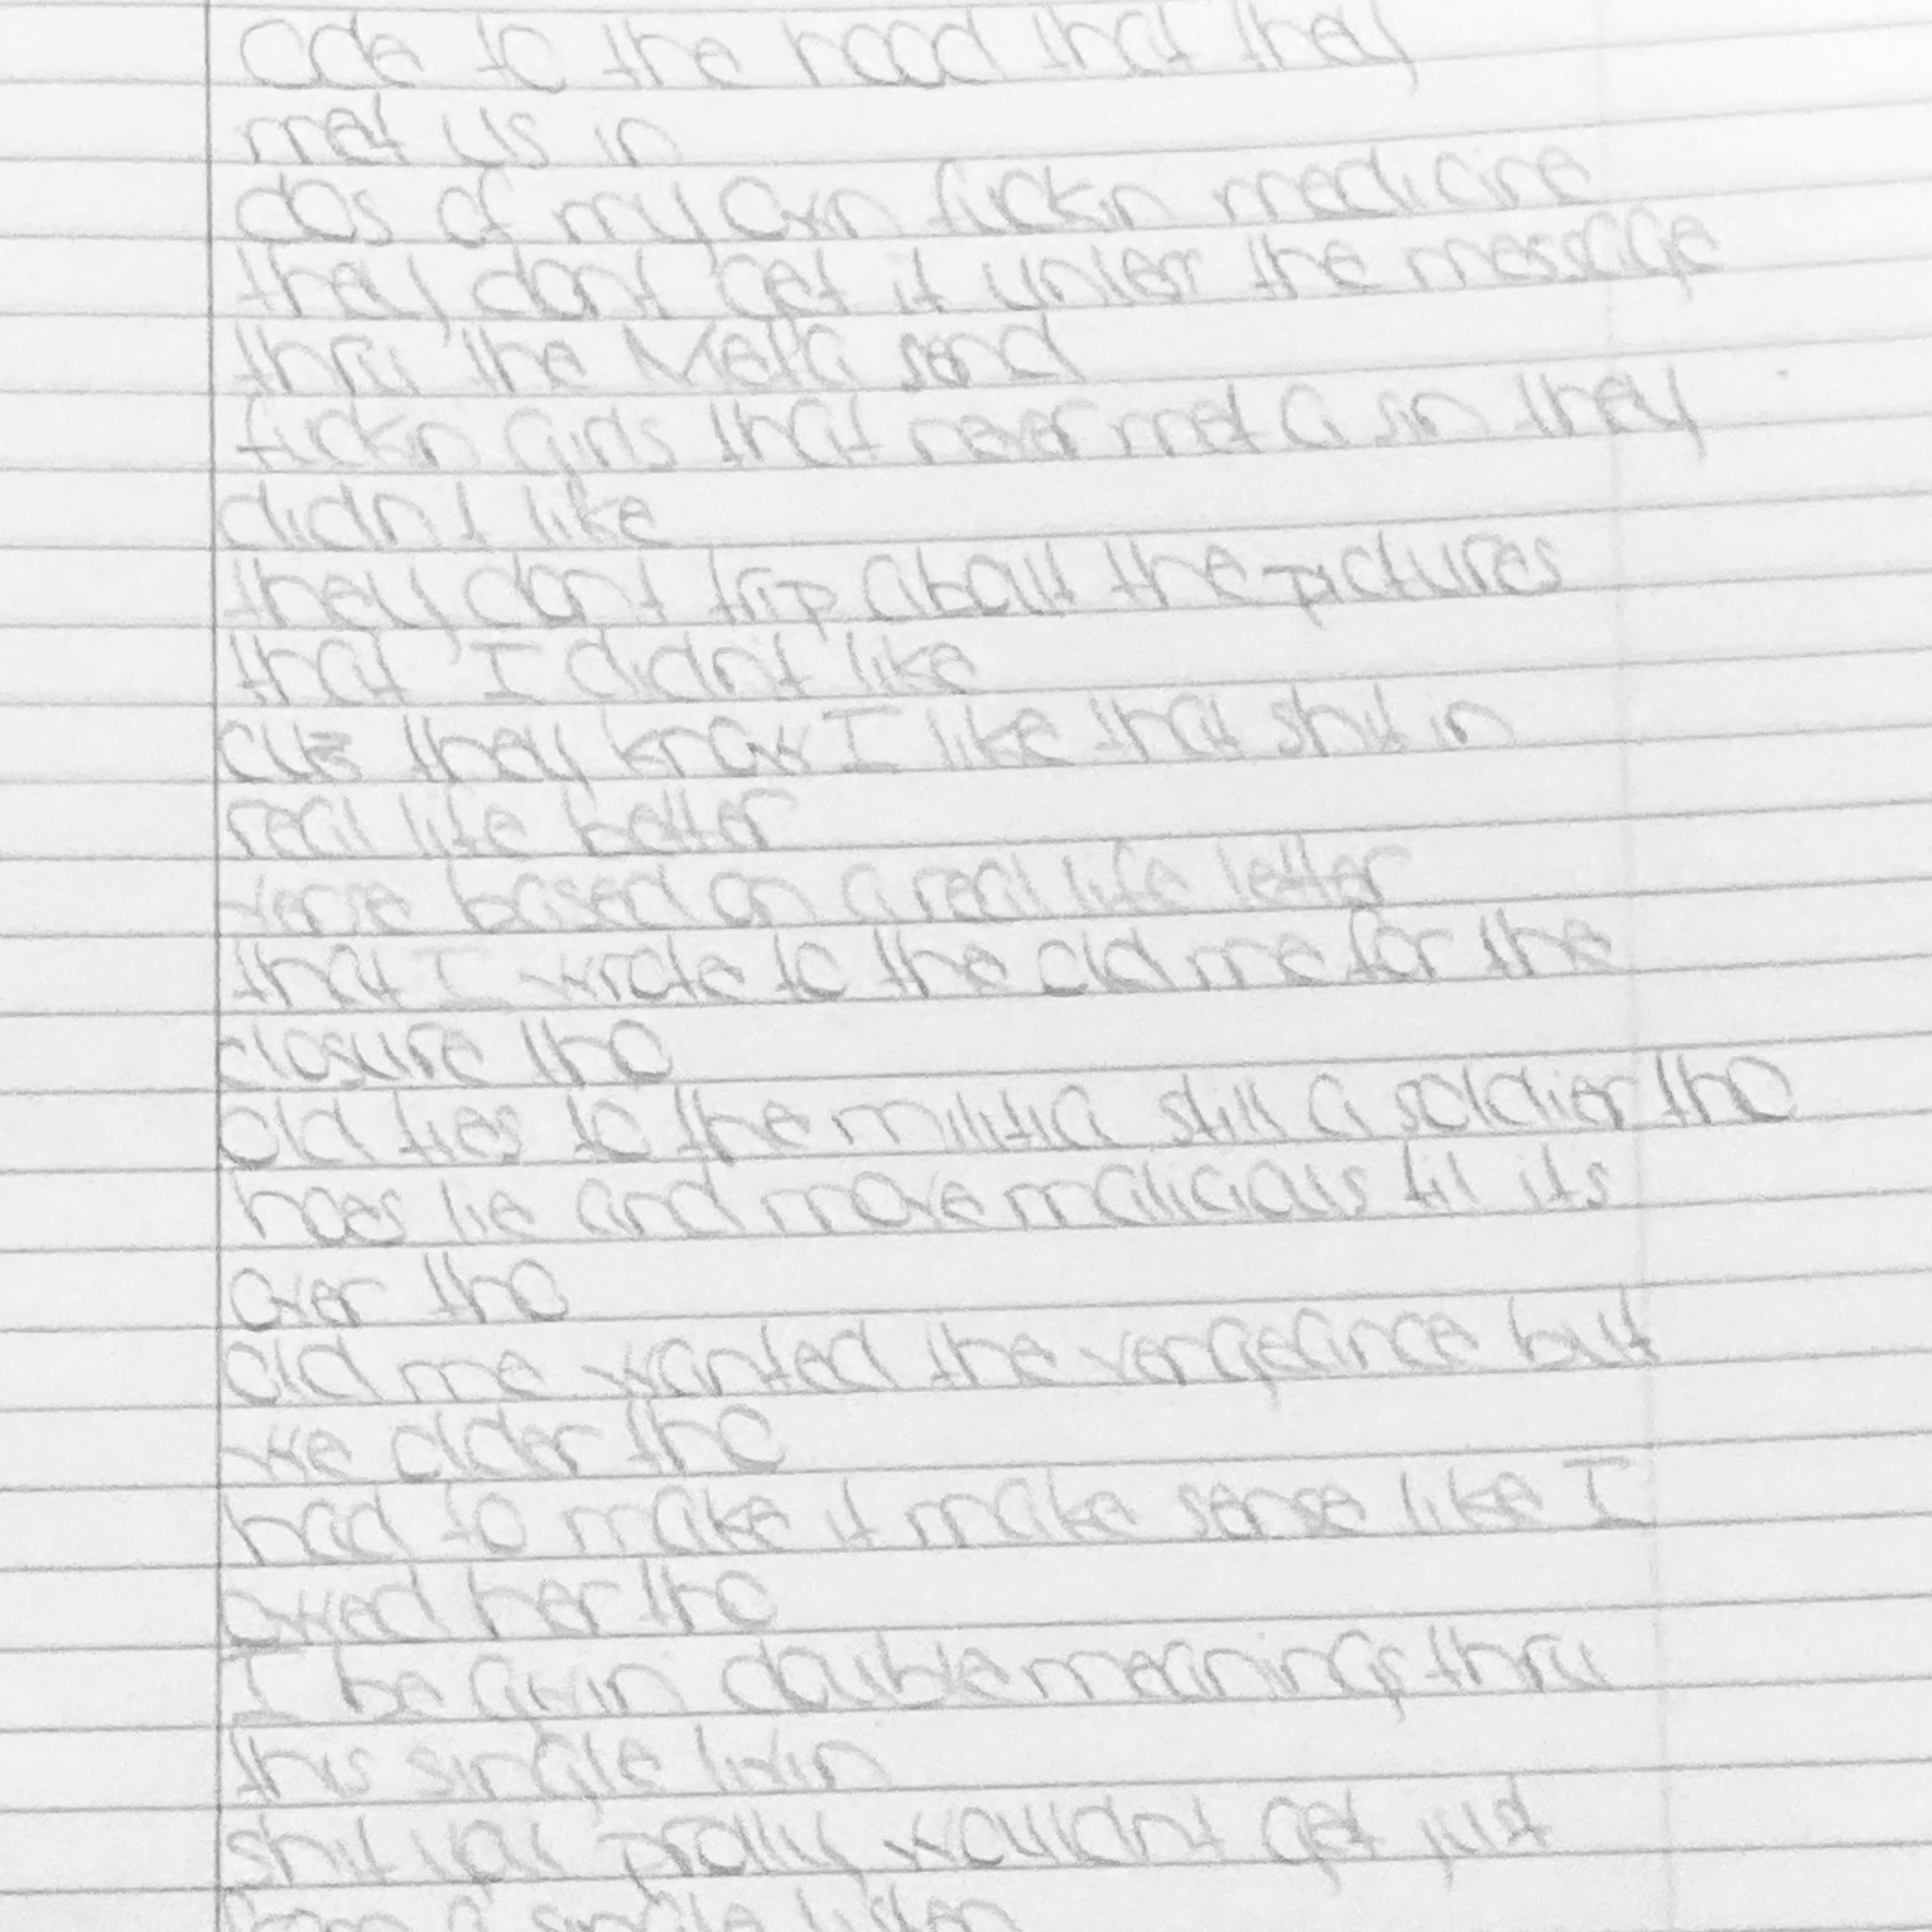 Ode to the hood that they
met us in
dos of my own fuckn medicine
they dont get it unless the message
thru the Meta send
fuckn girls that never met a sin they
didnt like
they dont trip about the pictures
that I didnt like
cuz they know I like that shit in
real life better
verse based on a real life letter
that I wrote to the old me for the
closure tho
old ties to the militia still a soldier tho
hoes lie and move malicious til its
over tho
old me wanted the vengeance but
we older tho
had to make it make sense like I
owed her tho
I be givin double meanings thru
this single livin
shit you prolly wouldnt get just
from a single listen